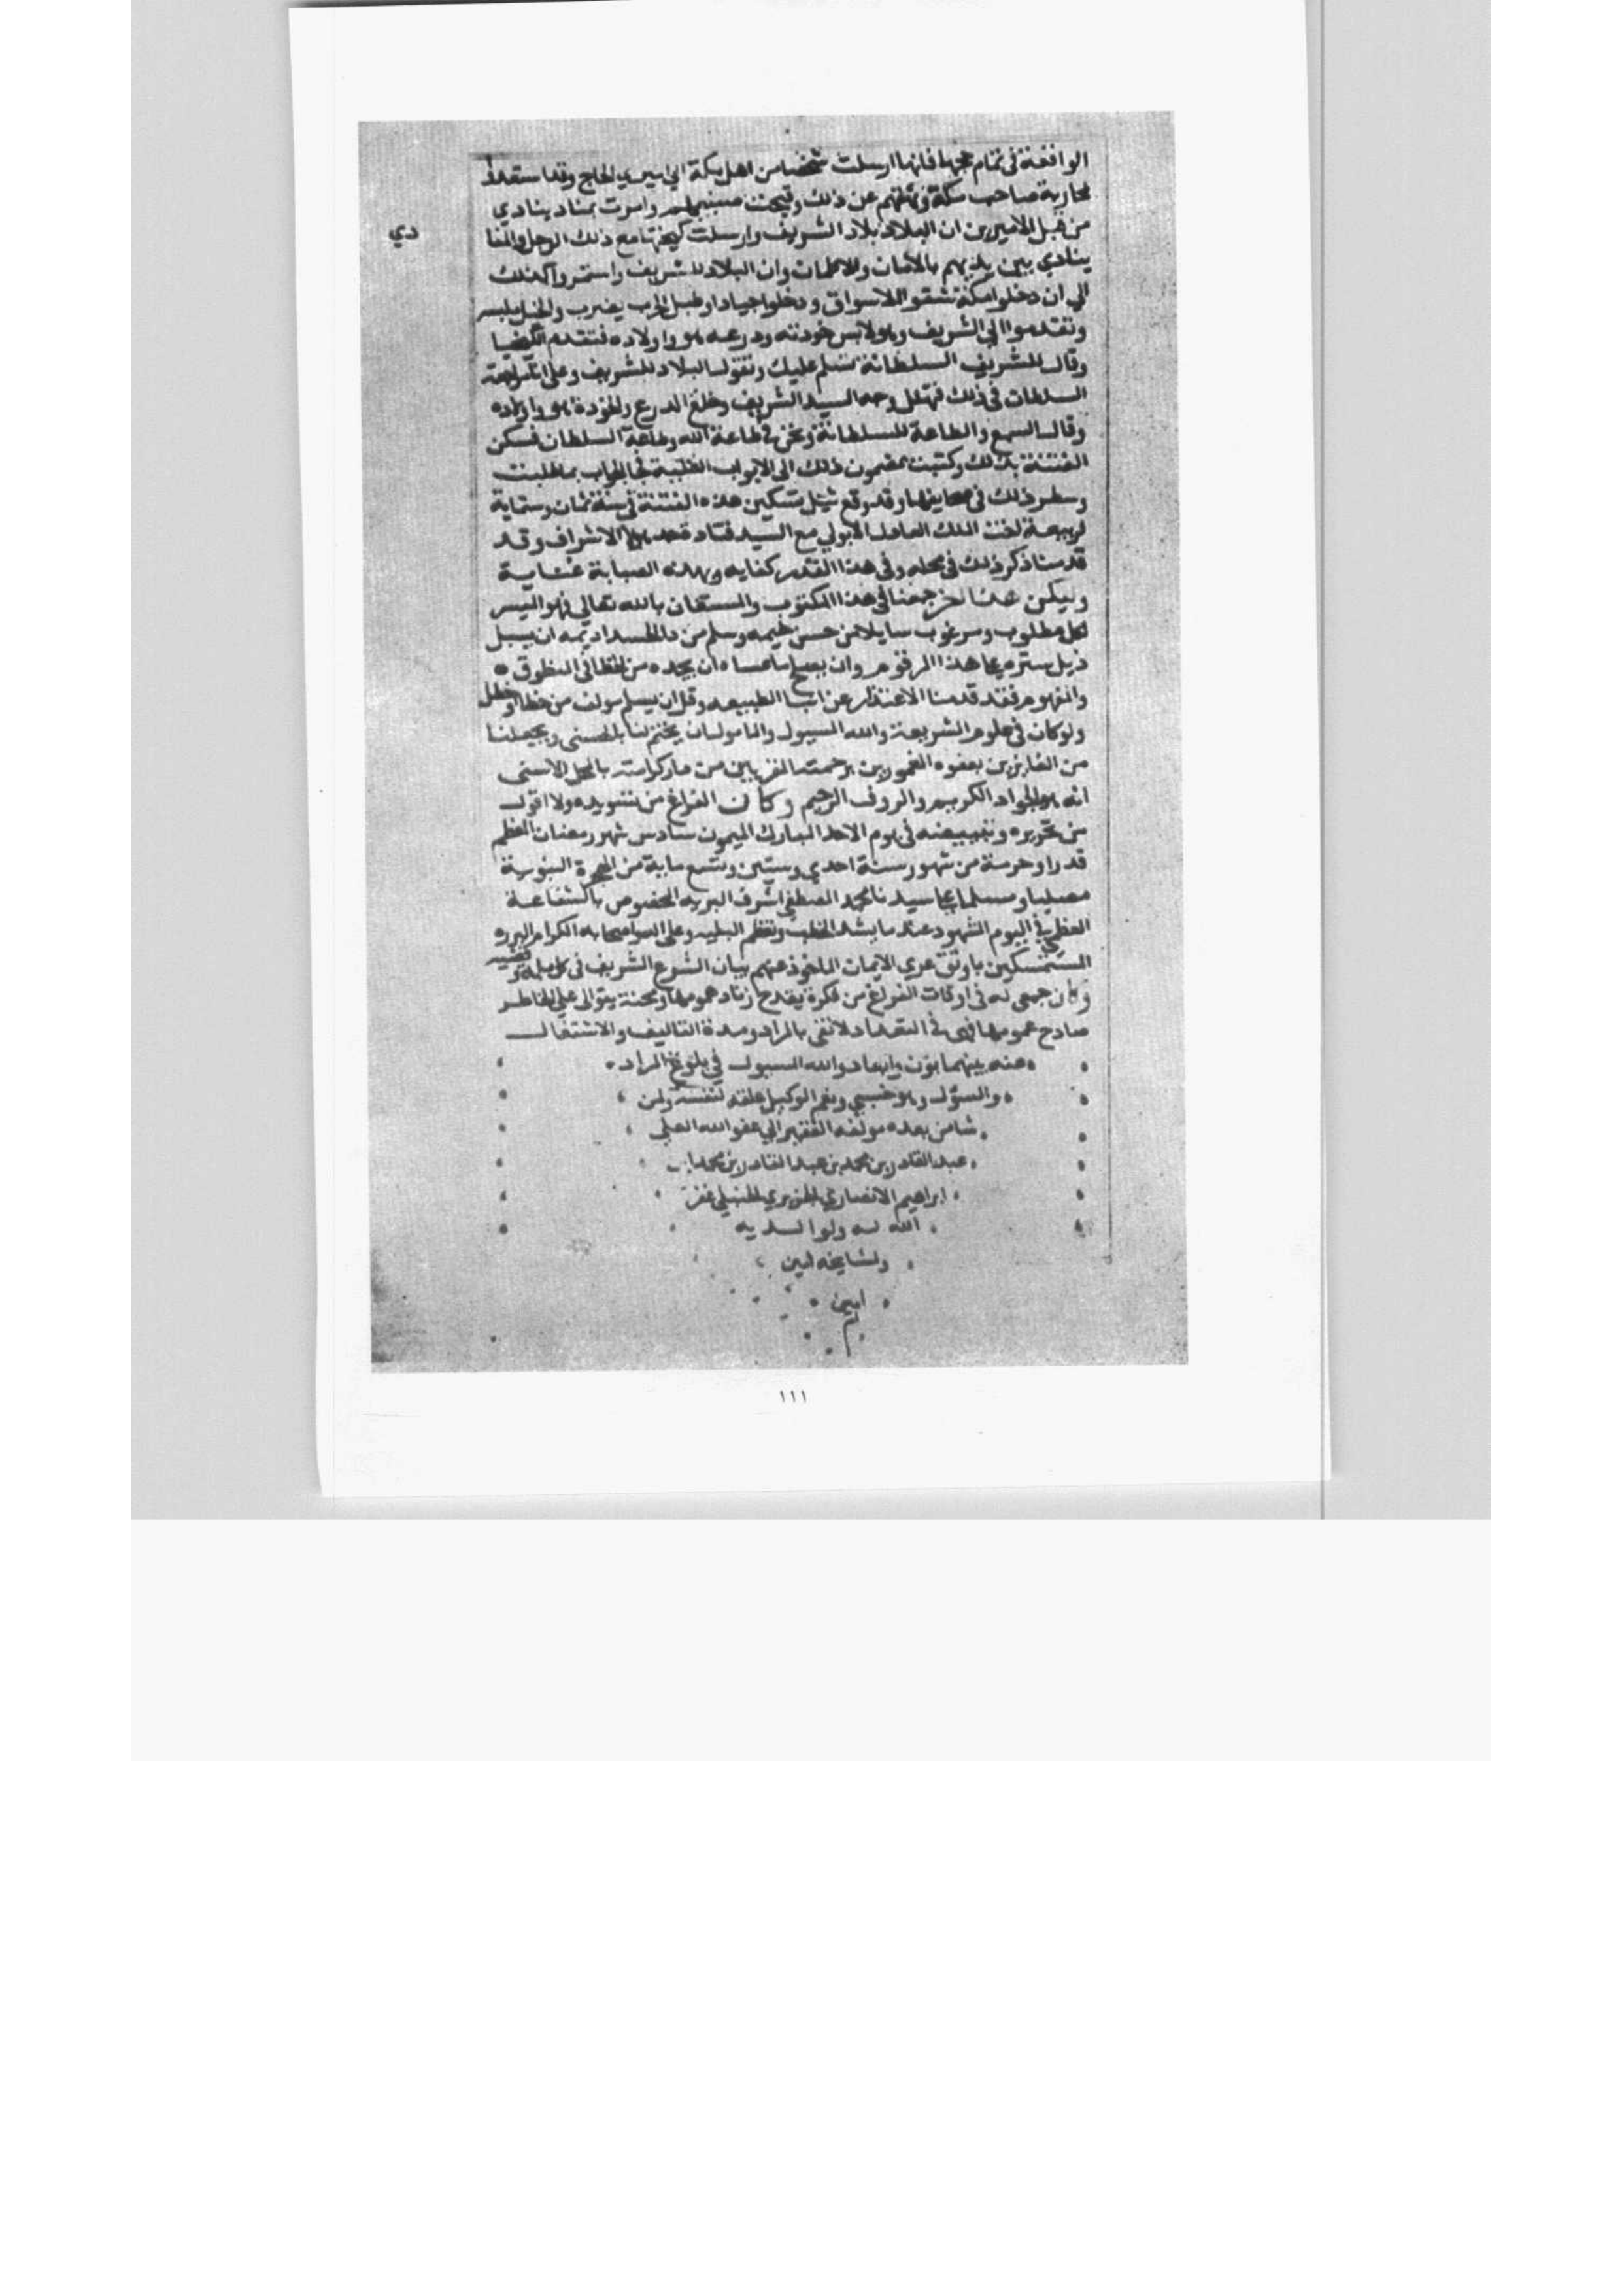 الواقعة في تمام حجها فانها ارسلت شخصا من اهل مكة الي اميري الحاج وقد استعدا
لمحاربة صاحب مكة ونهتهم عن ذلك وقبحت وامرت بمناد ينادي
من قبل الاميرين ان البلاد بلاد الشريف وارسلت مع ذلك الرجل والمنا
دي
ينادي بين يديهم بالامان والاطمان وان البلاد للشريف واستمروا كذلك
الي ان دخلوا مكة فشقوا الاسواق ودخلوا اجيادا وطبل الحرب يضرب والخيل
وتقدموا الي الشريف وهو لابس خودته ودرعه هو واولاده فتقدم
وقال للشريف السلطانة تسلم عليك وتقول البلاد للشريف وعلي
السلطان في ذلك فتهلل وجه السيد الشريف وخلع الدرع والخودة هو واولاده
وقال السمع والطاعة للسلطانة ونحن في طاعة الله وطاعة السلطان فسكن
الفتنة بذلك وكتبت بمضمون ذلك الي الابواب فجا الجواب بما طلبت
وسطر ذلك في صحايفها وقد وقع مثل تسكين هذه الفتنة في سنة ثمان وستماية
لربيعة اخت الملك العادل الايوبي مع السيد قتادة جد هولا الاشراف وقد
قدمنا ذكر ذلك في محله وفي هذا القدر كفايه وبهذه الصبابة عناية
وليكن هذا اخر جمعنا في هذا المكتوب والمستعان بالله تعالي فهو الميسر
لكل مطلوب ومرغوب سايلا من حسن خيمه وسلم من دا الحسد اديمه ان يسبل
ذيل ستره علي هذا المرقوم وان يصلح ما عساه ان يجده من الخطا في المنطوق
والمفهوم فقد قدمنا الاعتذار عن الطبيعه وقل ان يسلم مولف من خطا او خطل
ولو كان في علوم الشريعة والله المسيول والمامول ان يختم لنا بالحسني ويجعلنا
من الفايزين بعفوه المغمورين برحمته المقربين من دار كرامته بالمحل الاسني
انه هو الجواد الكريم والروف الرحيم وكان الفراغ من تسويده ولا اقول
من تحريره وتبييضه في يوم الاحد المبارك الميمون سادس شهر رمضان المعظم
قدرا وحرمة من شهور سنة احدي وستين وتسع ماية من الهجرة النبوية
مصليا ومسلما علي سيدنا محمد المصطفي اشرف البريه المخصوص بالشفاعة
العظمي في اليوم المشهود عند ما يشتد الخطب وتعظم البليه وعلي اله واصحابه الكرام البرره
المستمسكين باوثق عري الايمان الماخوذ عنهم بيان الشرع الشريف في كل وقضيه
وكان جمعي له في اوقات الفراغ من فكرة يقدح زناد همومها ومحنة يتوالي علي الخاطر
صادح غمومها فهي في التعداد لا تفي بالمراد ومدة التاليف والاشتغال
عنه بينهما بون وابعاد والله المسيول في بلوغ المراد
والسؤل وهو حسبي ونعم الوكيل علقه لنفسه ولمن
شا من بعده مولفه الفقير الي عفو الله العلي
عبد القادر بن محمد بن عبد القادر بن محمد بن
ابراهيم الانصاري الجزيري الحنبلي غفر
الله له ولوالديه
ولمشايخه امين
امين
م
١١١